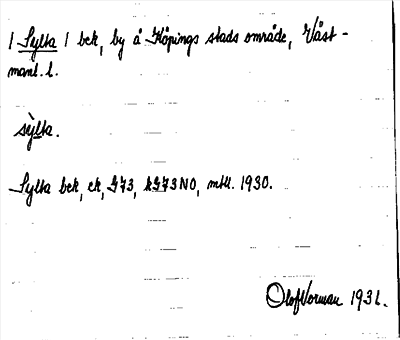 / Sylta / bek, by å Köpings stads område, Väst-
manl. l.
sỳlta.
Sylta bek, ek, G73, kG73NO, mtll. 1930.
Olof Norman 1931.